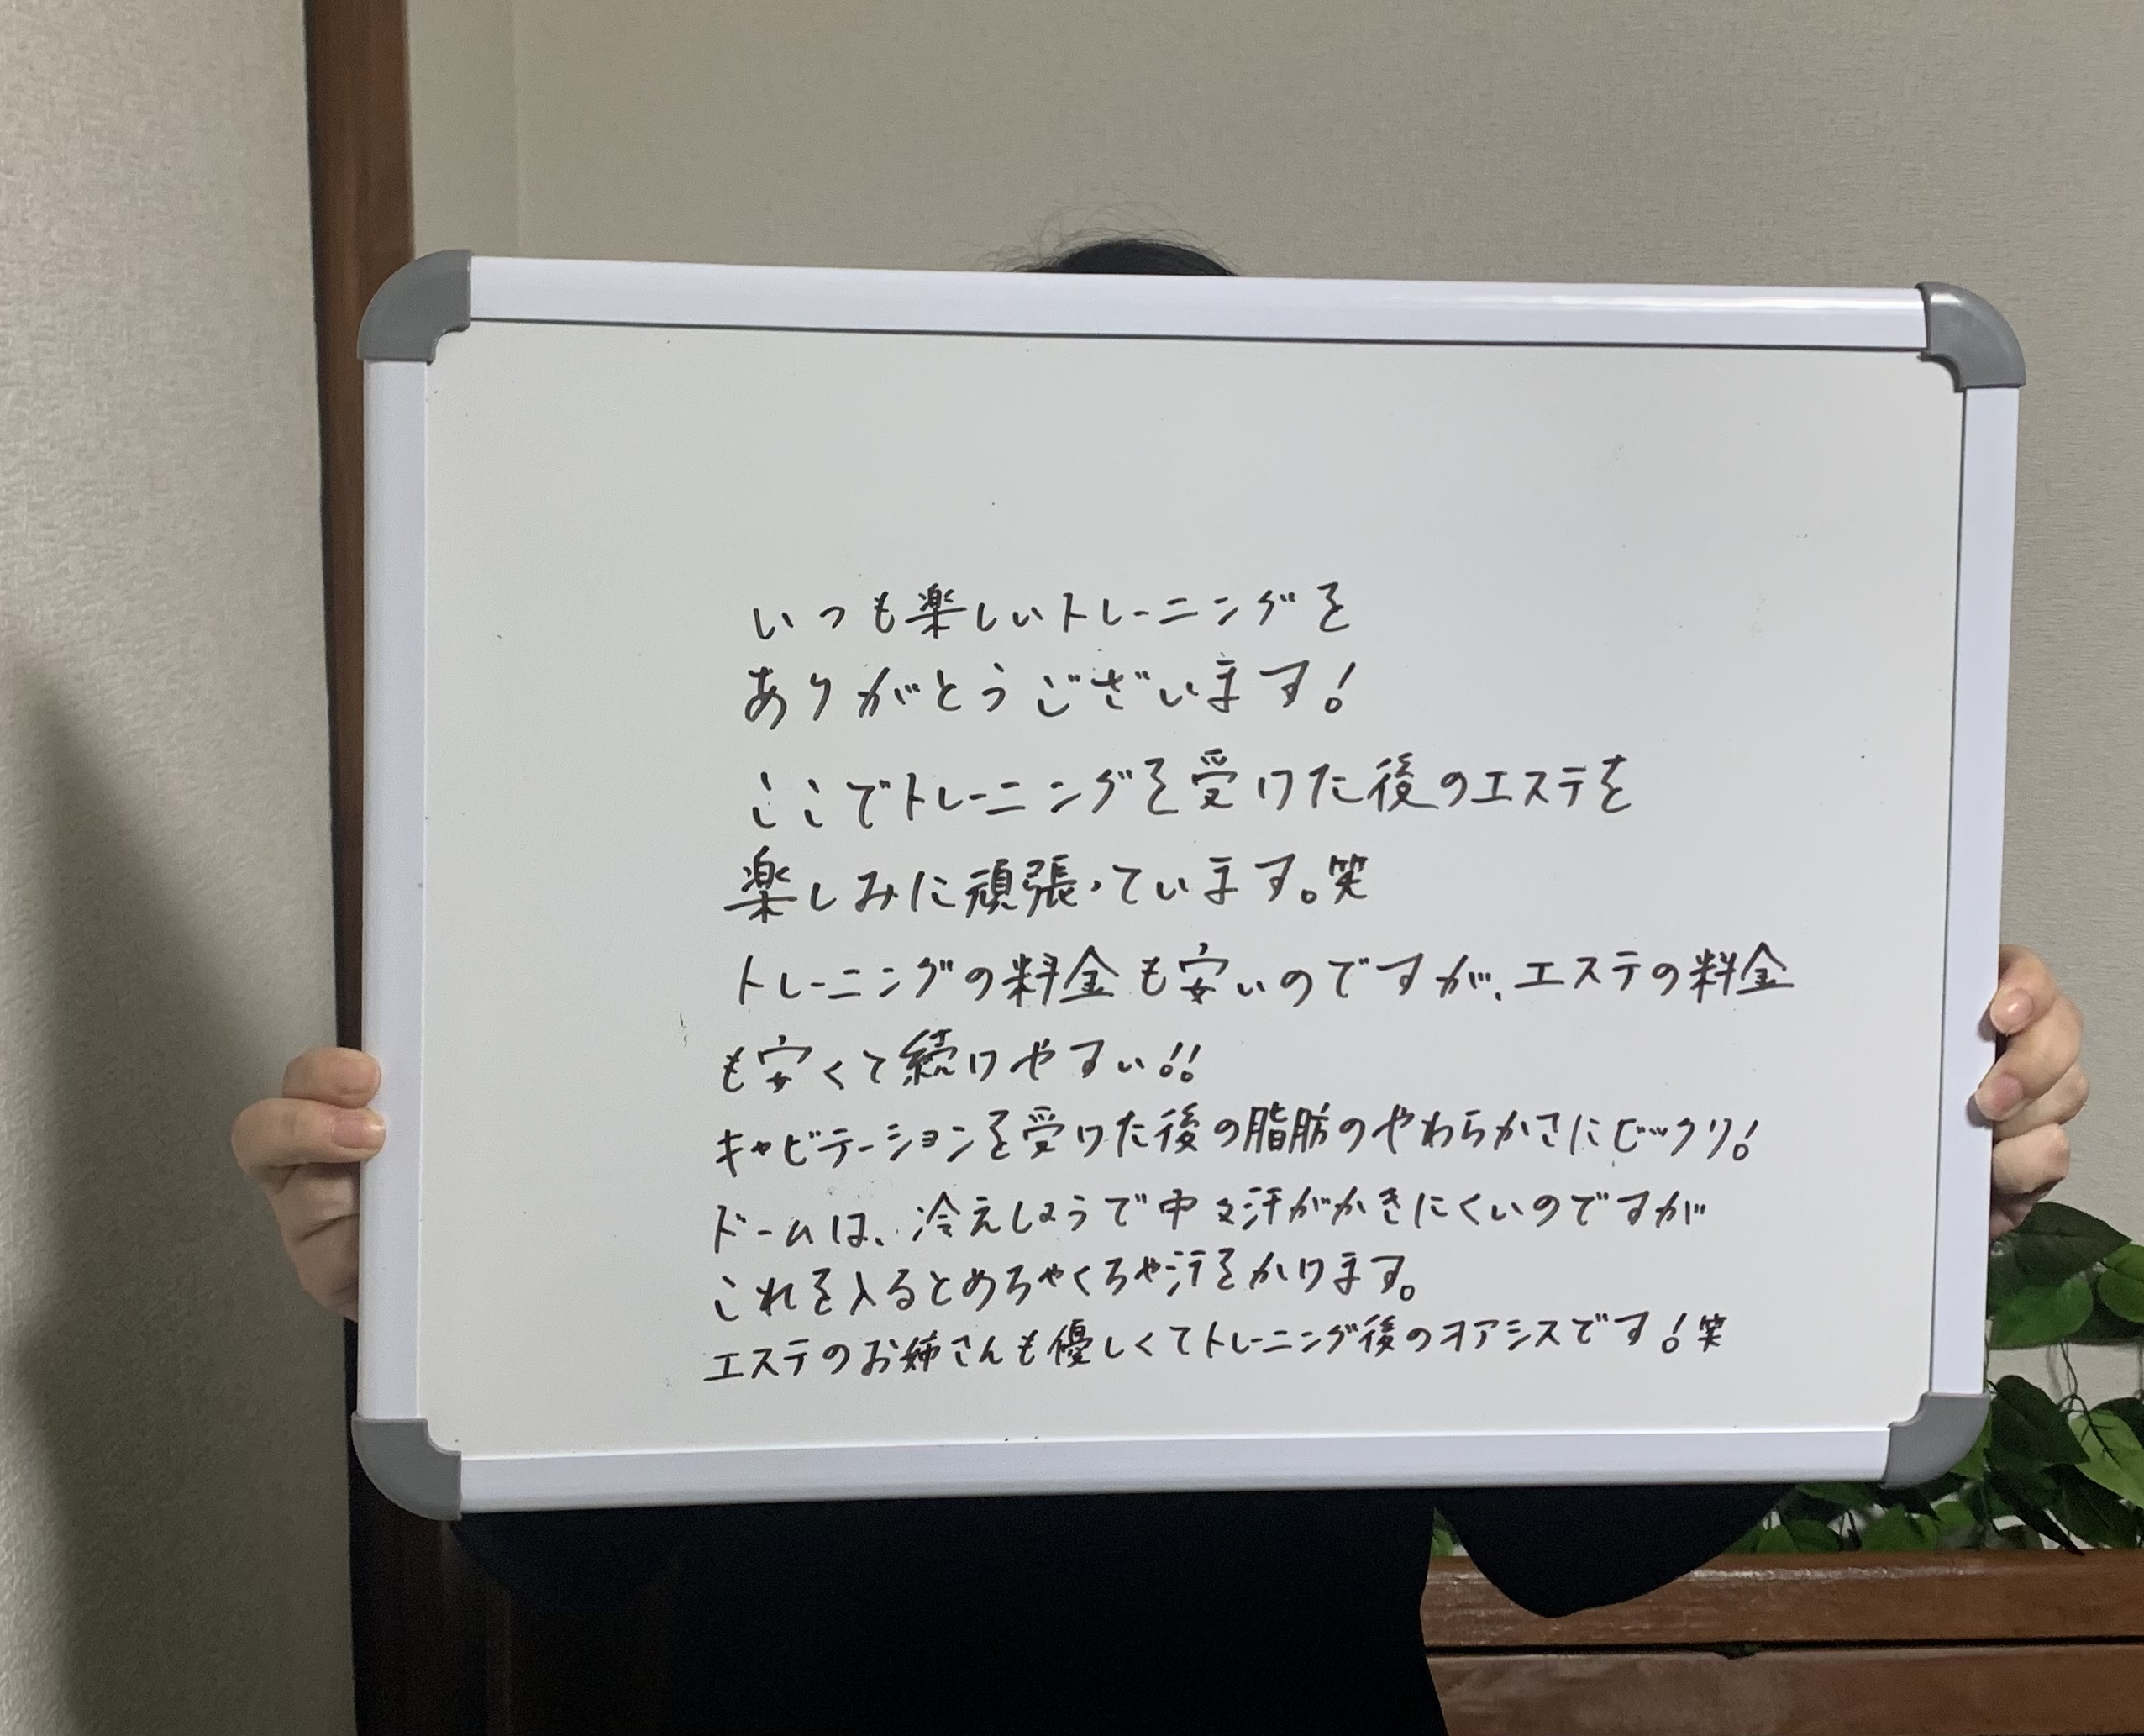 いつも楽しいトレーニングを
ありがとうございます!
ここでトレーニングを受けた後のエステを
楽しみに頑張っています。笑
トレーニングの料金も安いのですが、エステの料金
も安くて続けやすい!!
キャビテーションを受けた後の脂肪のやわらかさにビックリ!
ドームは、冷えしょうで中々汗がかきにくいのですが
これを入るとめちゃくちゃ汗をかけます。
エステのお姉さんも優しくてトレーニング後のオアシスです!笑